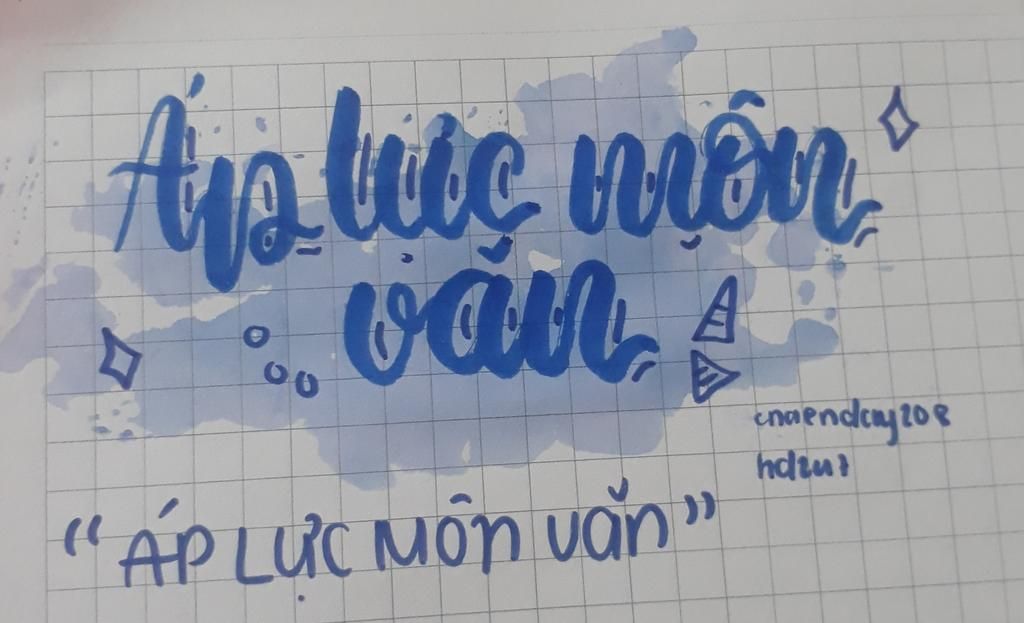 Áp lực môn
văn
hd2u7
"ÁP LỰC MÔN VĂN"